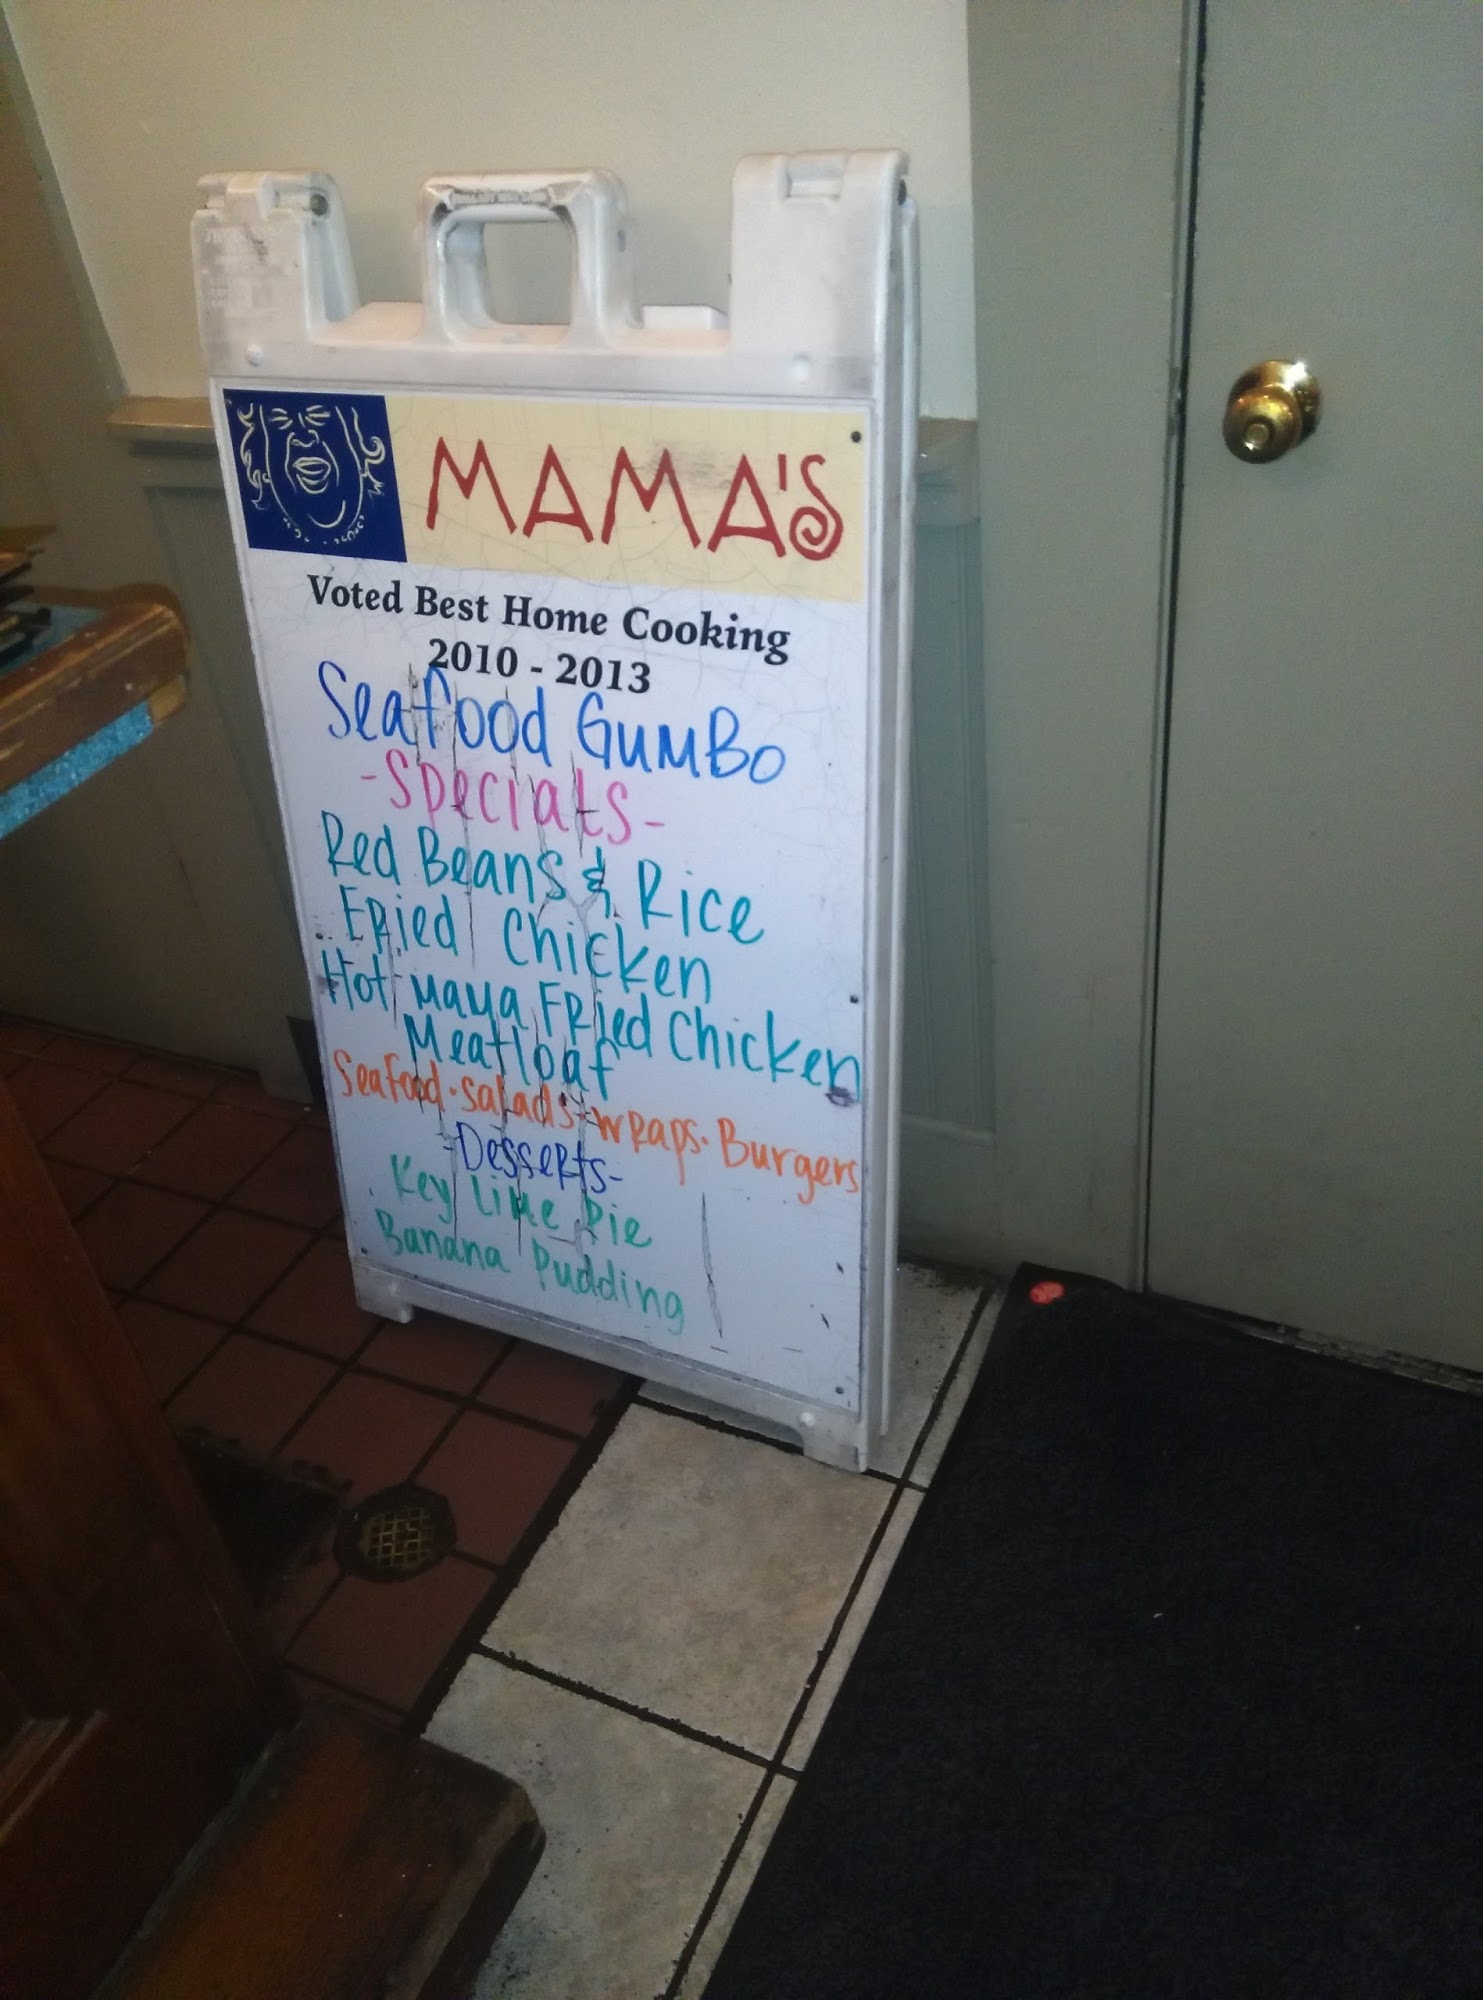 MAMA'S
Voted Best Home Cooking
2010 - 2013
Seafood GumBo
-Specials-
Red Beans & Rice
Fried Chicken
Hot Mama Fried Chicken
Meatloaf
Seafood · Salads · Wraps · Burgers
-Desserts-
Key Lime Pie
Banana Pudding